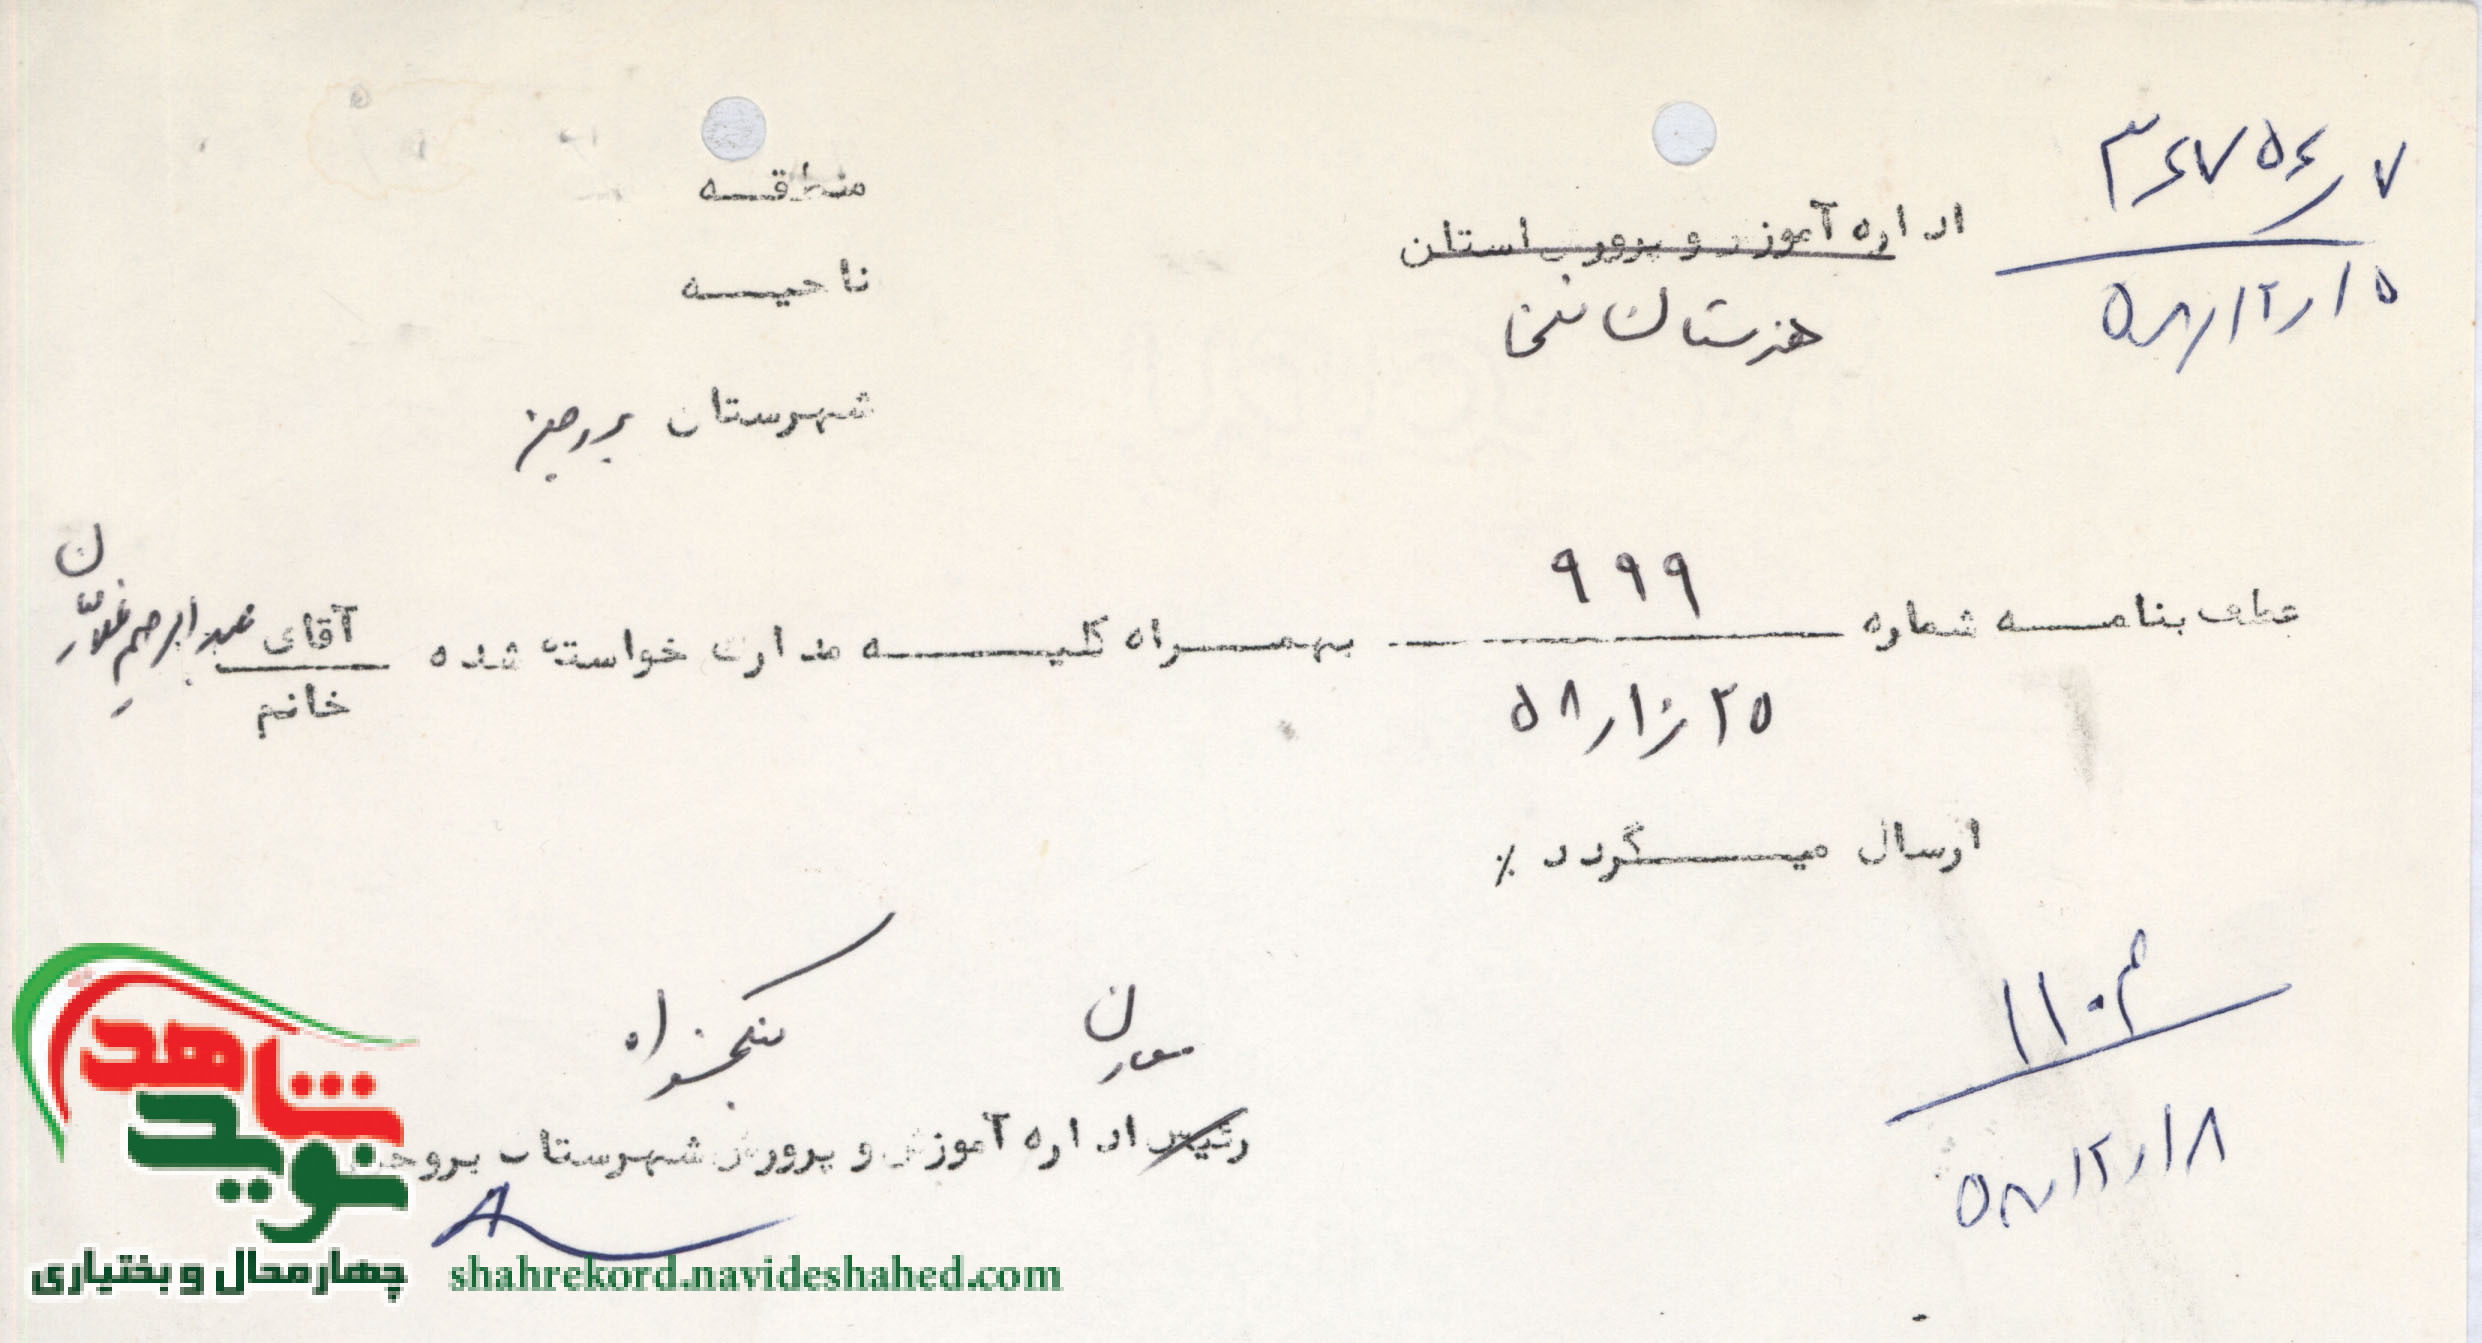 ۳۶۷۵۶٫۷
۵۸/۱۲/۱۵
اداره آموزش و پرورش استان
هنرستان
منطقه
ناحیه
شهرستان بروجن
عطف بنامه شماره ۹۹۹ بهمراه کلیه مدارک خواسته شده آقای عبدالرحیم
۵۸/۱۰/۲۵
خانم
ارسال میگردد ٪
۱۱۰۳
۵۸/۱۲/۱۸
معاون
نیکخواه
رئیس اداره آموزش و پرورش شهرستان بروجن
نوید شاهد
چهارمحال و بختیاری
shahrekord.navideshahed.com